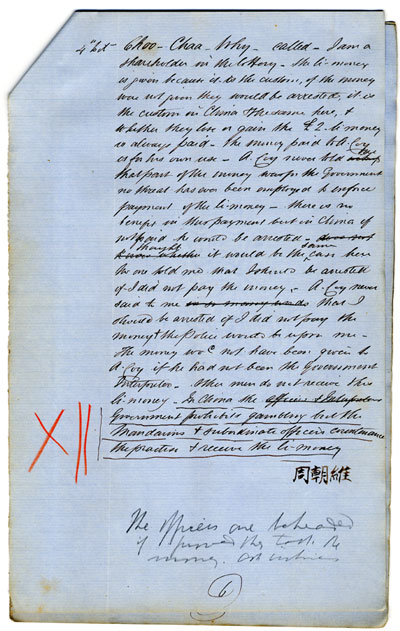 4th Wit Choo-Chaa-Why - called - I am a
shareholder in the lottery. The li-money
is given because it is the custom, if the money
were not given they would be arrested, it is
the custom in China & the same here, &
whether they lose or gain the £2. li money
is always paid - The money paid to A. Coy
is for his own use - A. Coy never told me
that part of this money was for the Government
no threat has ever been employed to enforce
payment of the li-money - there is no
benefit in this payment but in China if
not paid he would be arrested - does not
know whether thought it would be the same case here
No one told me that I should be arrested
if I did not pay the money - A. Coy never
said to me in so many words that I
should be arrested if I did not pay the
money & the Police would be upon me -
The money wod not have been given to
A. Coy if he had not been the Government
Interpreter. Other men do not receive this
li-money - In China the officers & Interpreters
Government prohibits gambling but the
Mandarins & subordinate officers countenance
the practice & receive the li-money
周朝維
The officers are beheaded
if proved they took the
money
6